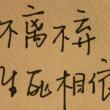 不离不弃
生死相依